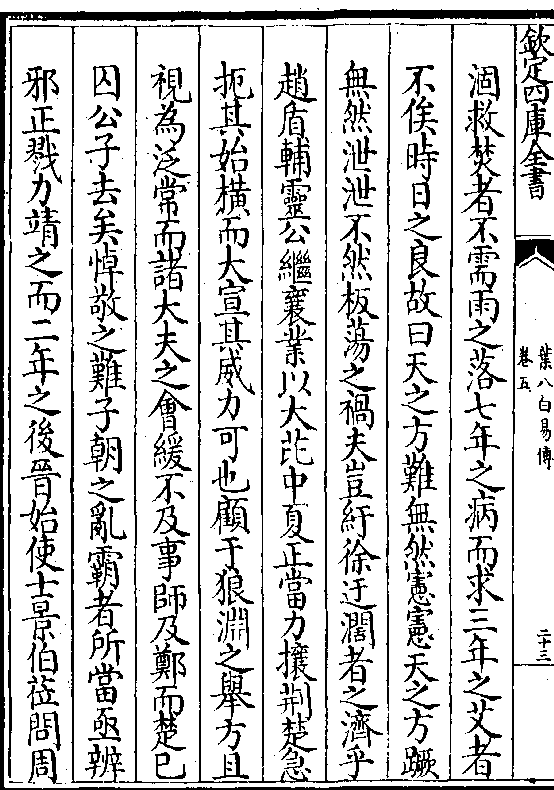 欽定四庫全書
葉八白易傳
卷五
二十三
涸救焚者不需雨之落七年之病而求三年之艾者
不俟時日之良故曰天之方難無然憲憲天之方蹶
無然泄泄不然板蕩之禍夫豈紆徐迂濶者之濟乎
趙盾輔靈公繼襄業以大芘中夏正當力攘荆楚急
扼其始橫而大宣其威力可也顧于狼淵之舉方且
視為泛常而諸大夫之會緩不及事師及鄭而楚已
囚公子去矣悼敬之難子朝之亂霸者所當亟辨
邪正戮力靖之而二年之後晉始使士景伯莅問周